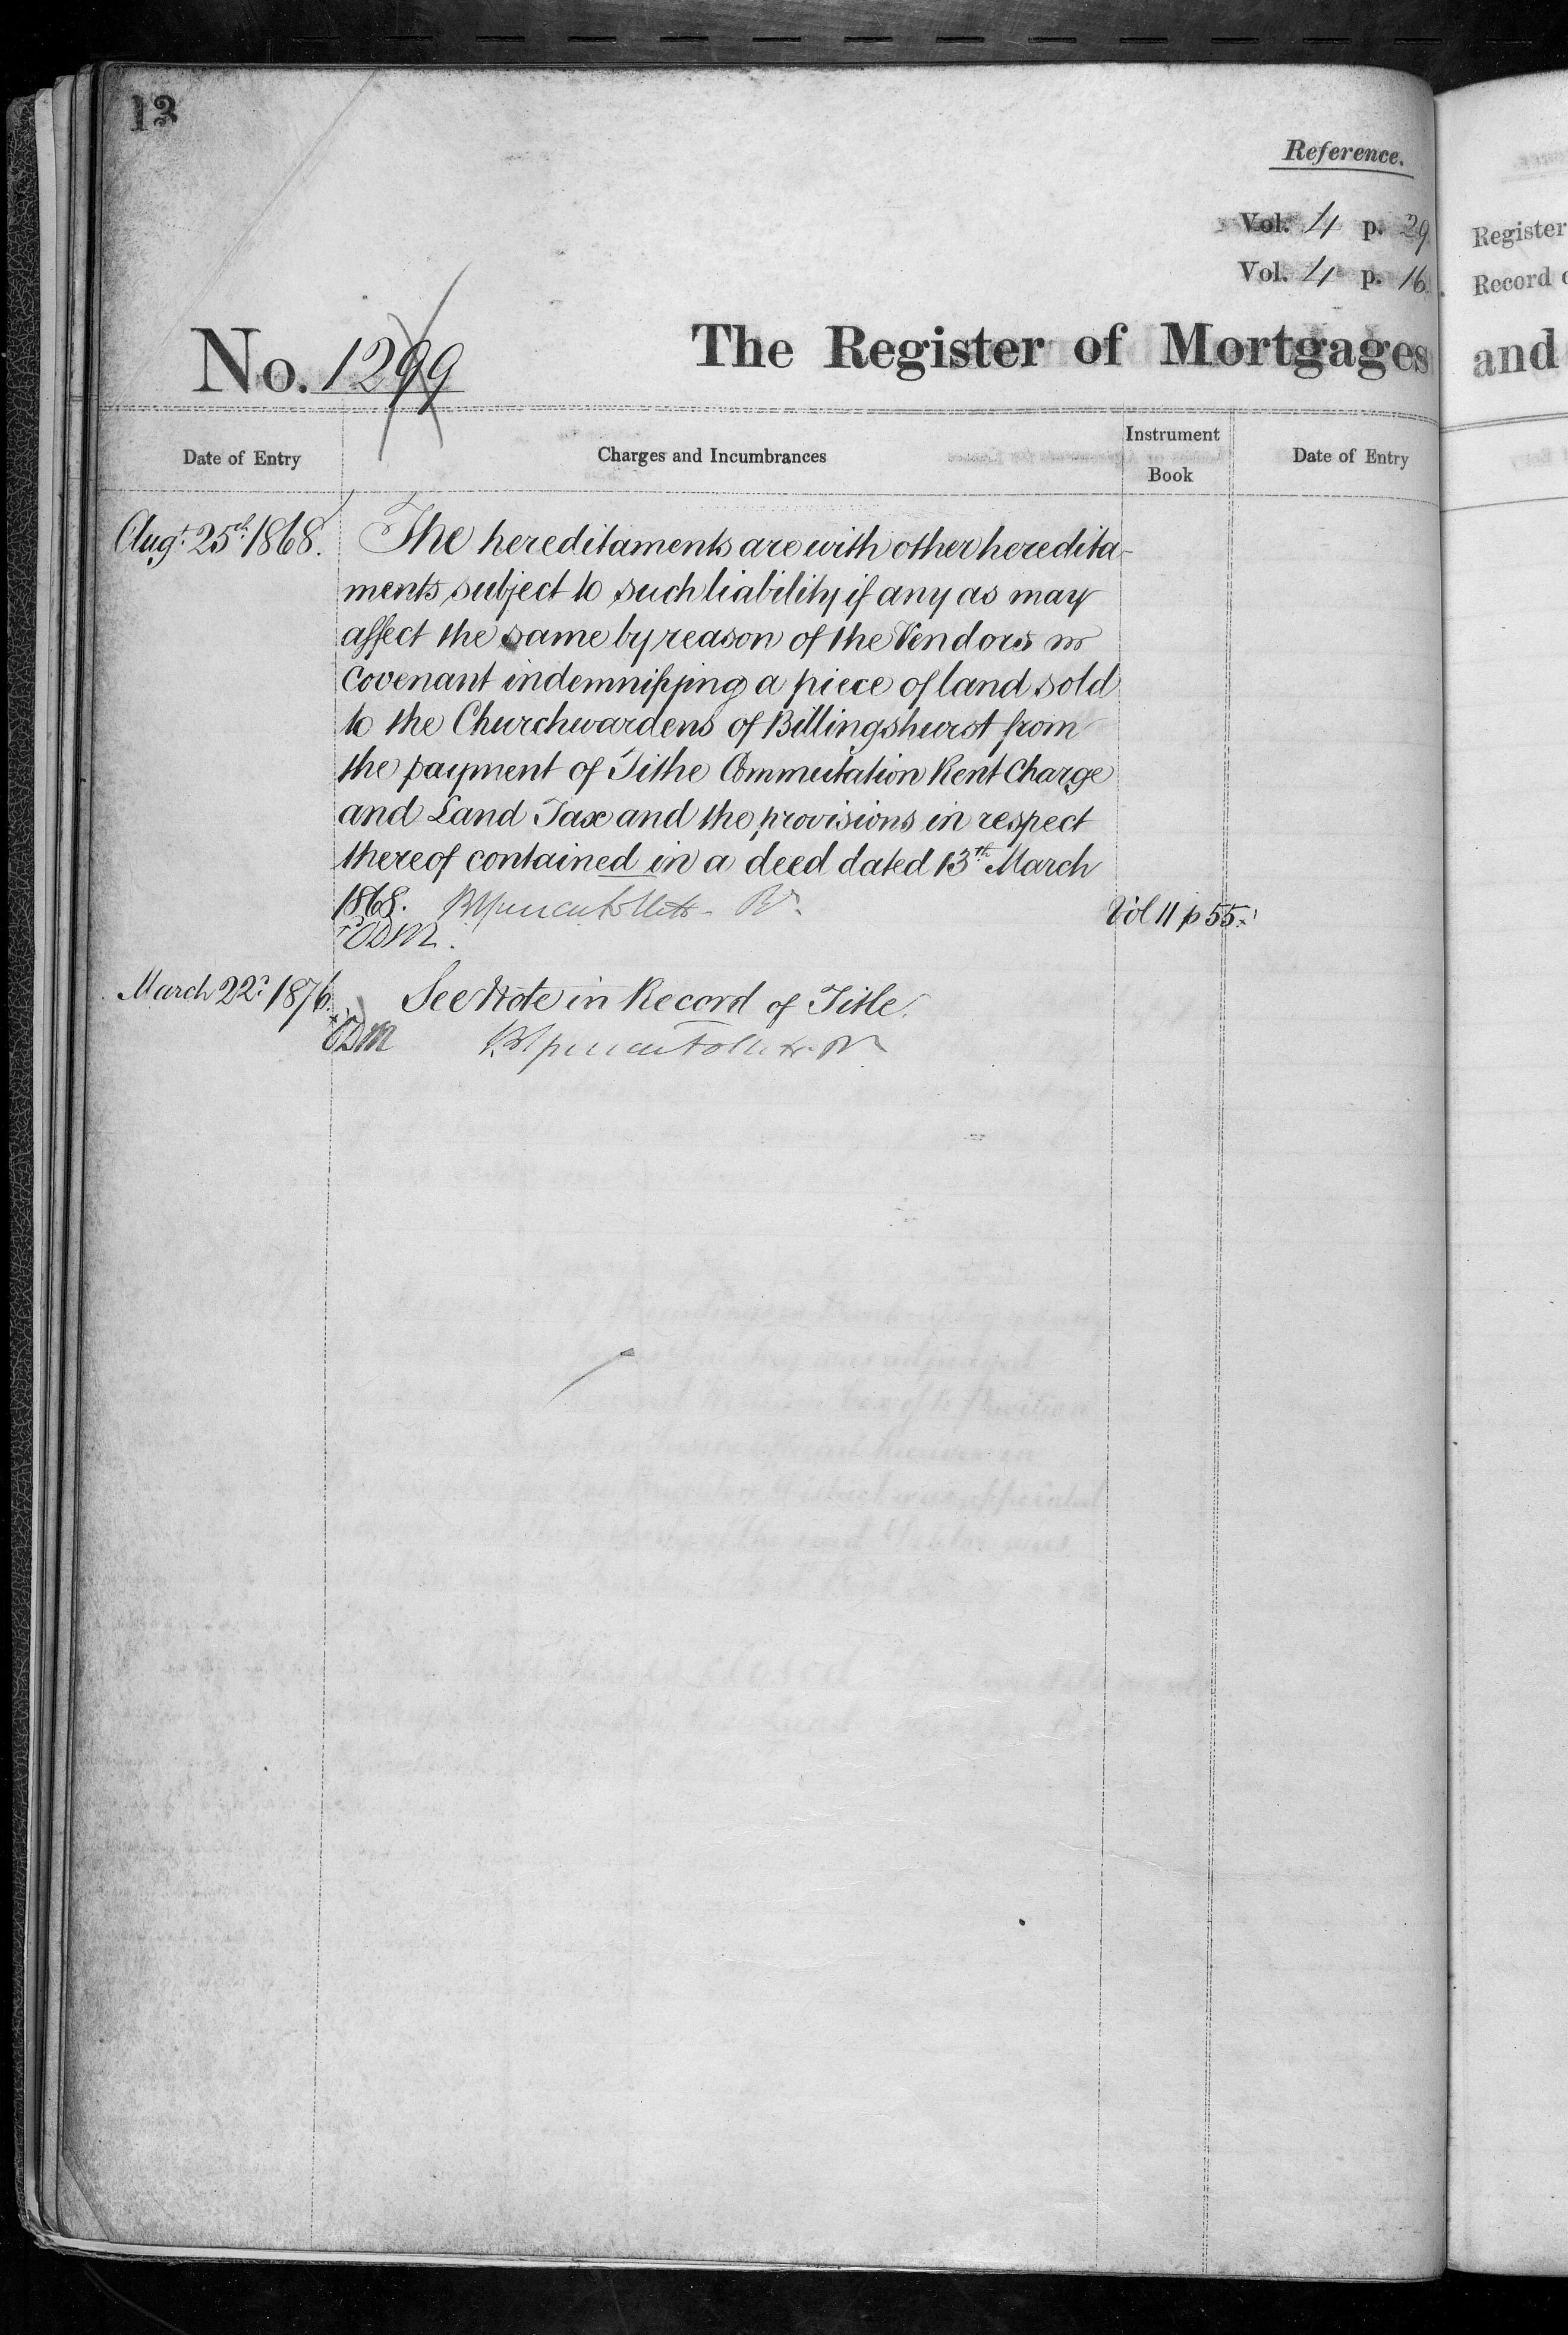 13
Reference.
Vol. 4 p. 29
Vol. 4 p. 16
Register
Record
No. 1299
The Register of Mortgages
and
Date of Entry
Charges and Incumbrances
Instrument
Book
Date of Entry
Augt. 25th 1868.
The hereditaments are with other heredita-
ments subject to such liability if any as may
affect the same by reason of the Vendors
covenant indemnifying a piece of land sold
to the Churchwardens of Billingshurst from
the payment of Tithe Commutation Rent Charge
and Land Tax and the provisions in respect
thereof contained in a deed dated 13th March
1868.
Vol 11 p 55.
March 22d 1876.
See Note in Record of Title.